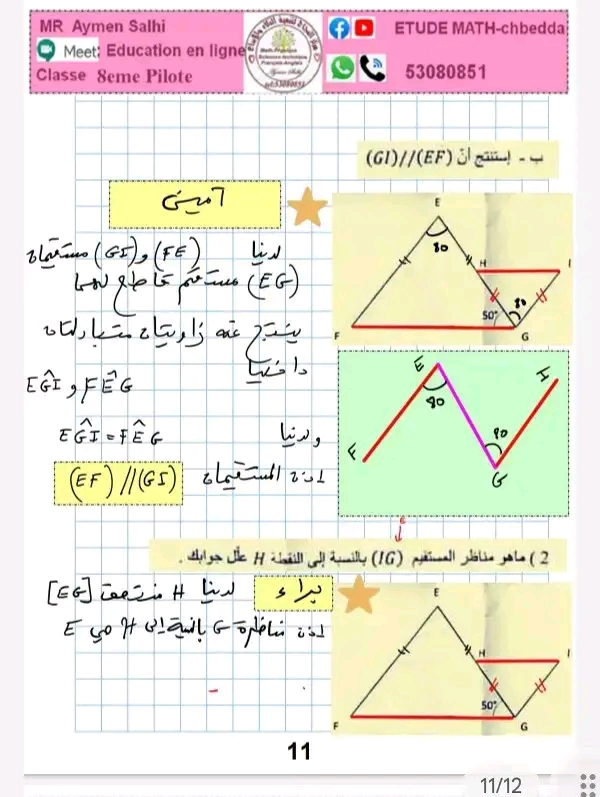 MR Aymen Salhi
Meet: Education en ligne
Classe 8eme Pilote
ETUDE MATH-chbedda
53080851
ب - إستنتج أنّ (EF)//(GI)
لدينا (FE) و (GI) مستقيمان
(EG) مستقيم قاطع لهما
ينتج عنه زاويتان متبادلتان
داخليا
EĜI و FÊG
ولدينا EĜI = FÊG
اذن المستقيمان (EF)//(GI)
E
80
H
I
50°
80
F
G
E
80
I
F
80
G
E
2 ) ماهو مناظر المستقيم (IG) بالنسبة إلى النقطة H علّل جوابك .
براء لدينا H منتصف [EG]
اذن مناظرة G بالنسبة إلى H هي E
E
H
I
50°
F
G
11
11/12